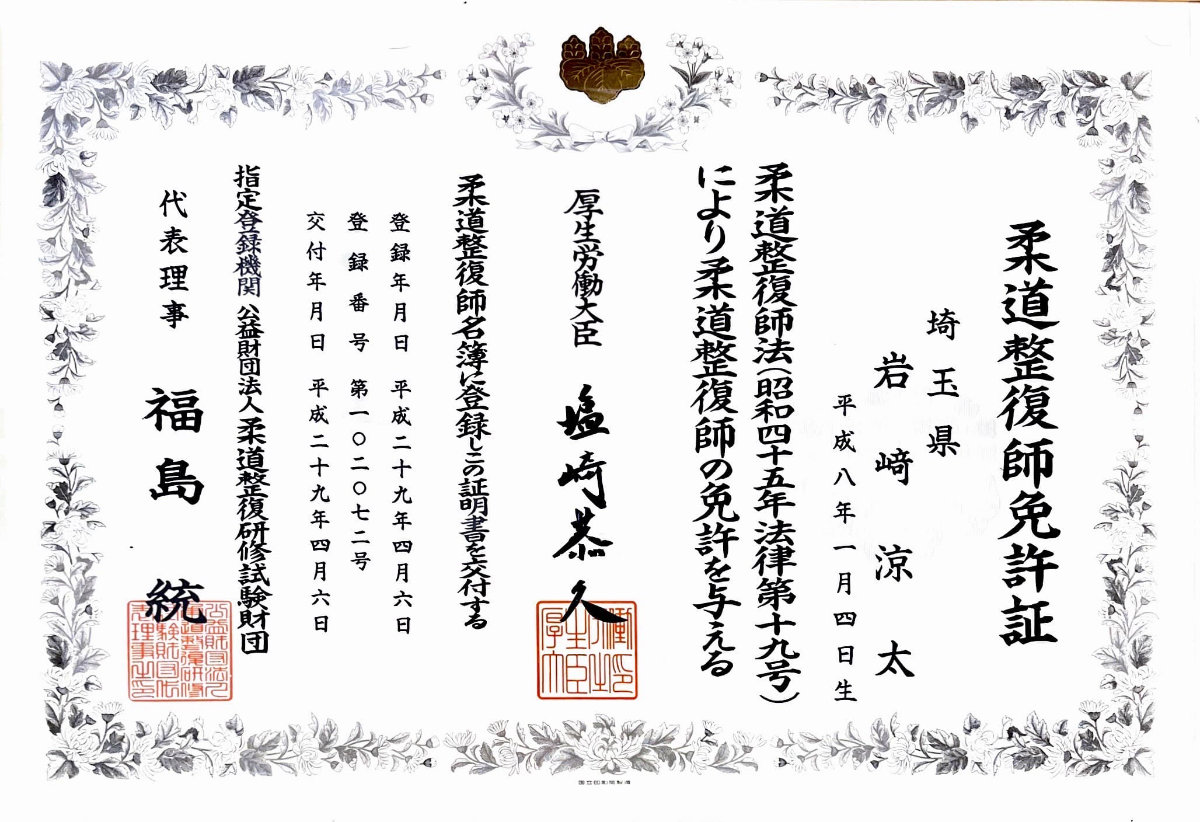 柔道整復師免許証
埼玉県
岩﨑涼太
平成八年一月四日生
柔道整復師法(昭和四十五年法律第十九号)
により柔道整復師の免許を与える
厚生労働大臣 塩崎恭久
柔道整復師名簿に登録しこの証明書を交付する
登録年月日 平成二十九年四月六日
登録番号 第一〇二〇七二号
交付年月日 平成二十九年四月六日
指定登録機関 公益財団法人柔道整復研修試験財団
代表理事 福島統
国立印刷局製造